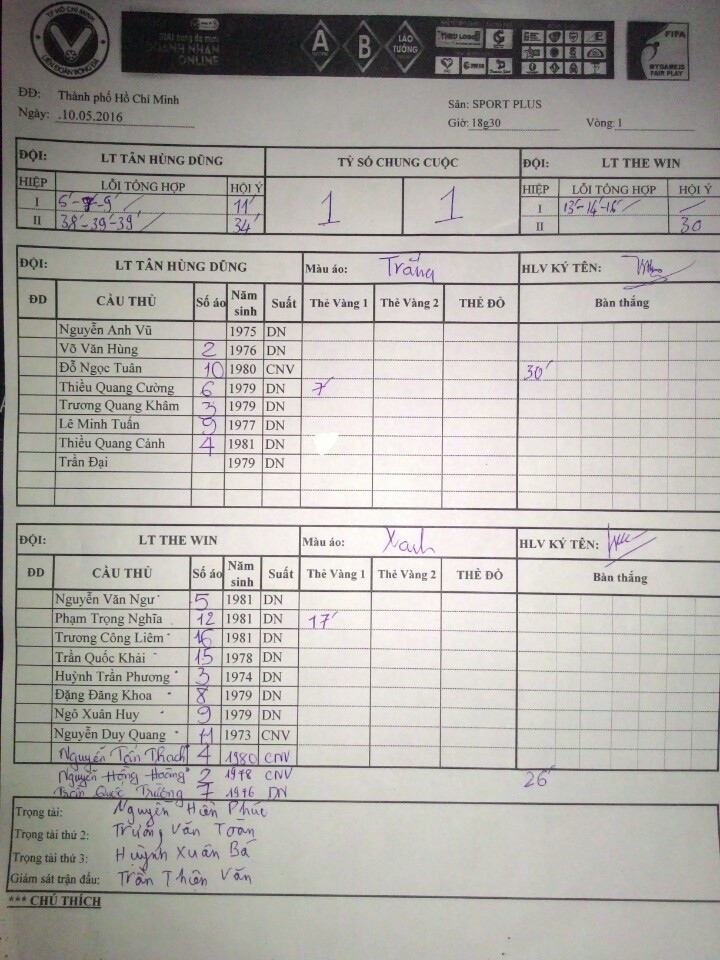 TP HỒ CHÍ MINH
LIÊN ĐOÀN BÓNG ĐÁ
DOANH NHÂN
ONLINE
A
B
LÀO
TƯỜNG
FIFA
MY GAME IS
FAIR PLAY
ĐĐ: Thành phố Hồ Chí Minh
Sân: SPORT PLUS
Ngày: .10.05.2016
Giờ: 18g30 Vòng: 1
ĐỘI: LT TÂN HÙNG DŨNG TỶ SỐ CHUNG CUỘC ĐỘI: LT THE WIN
HIỆP LỖI TỔNG HỢP HỘI Ý 1 1 HIỆP LỖI TỔNG HỢP HỘI Ý
I 5'-7-9' 11' I 13'-14'-16'
II 38'-39'-39' 34' II 30
ĐỘI: LT TÂN HÙNG DŨNG Màu áo: Trắng HLV KÝ TÊN:
ĐD CẦU THỦ Số áo Năm sinh Suất Thẻ Vàng 1 Thẻ Vàng 2 THẺ ĐỎ Bàn thắng
Nguyễn Anh Vũ 1975 DN
Võ Văn Hùng 2 1976 DN
Đỗ Ngọc Tuân 10 1980 CNV 30'
Thiều Quang Cường 6 1979 DN 7'
Trương Quang Khâm 3 1979 DN
Lê Minh Tuấn 9 1977 DN
Thiều Quang Cảnh 4 1981 DN
Trần Đại 1979 DN
ĐỘI: LT THE WIN Màu áo: Xanh HLV KÝ TÊN:
ĐD CẦU THỦ Số áo Năm sinh Suất Thẻ Vàng 1 Thẻ Vàng 2 THẺ ĐỎ Bàn thắng
Nguyễn Văn Ngư 5 1981 DN
Phạm Trọng Nghĩa 12 1981 DN 17'
Trương Công Liêm 16 1981 DN
Trần Quốc Khải 15 1978 DN
Huỳnh Trần Phương 3 1974 DN
Đặng Đăng Khoa 8 1979 DN
Ngô Xuân Huy 9 1979 DN
Nguyễn Duy Quang 11 1973 CNV
Nguyễn Tấn Thạch 4 1980 CNV
Nguyễn Hồng Hoàng 2 1978 CNV 26'
Trần Quốc Trường 7 1976 DN
Trọng tài: Nguyễn Hiền Phúc
Trọng tài thứ 2: Trương Văn Toàn
Trọng tài thứ 3: Huỳnh Xuân Bá
Giám sát trận đấu: Trần Thiện Văn
*** CHÚ THÍCH